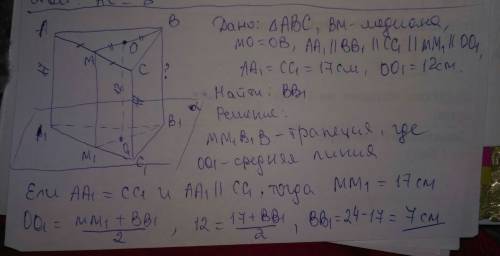 A
B
O
M
C
17
17
?
12
α
A₁
B₁
M₁
O₁
C₁
Дано: ΔABC, BM-медиана,
MO=OB, AA₁ || BB₁ || CC₁ || MM₁ || OO₁,
AA₁ = CC₁ = 17 см, OO₁ = 12 см.
Найти: BB₁
Решение:
MM₁B₁B - трапеция, где
OO₁ - средняя линия
Если AA₁ = CC₁ и AA₁ || CC₁, тогда MM₁ = 17 см
OO₁ = (MM₁ + BB₁)/2, 12 = (17+BB₁)/2, BB₁ = 24-17 = 7 см